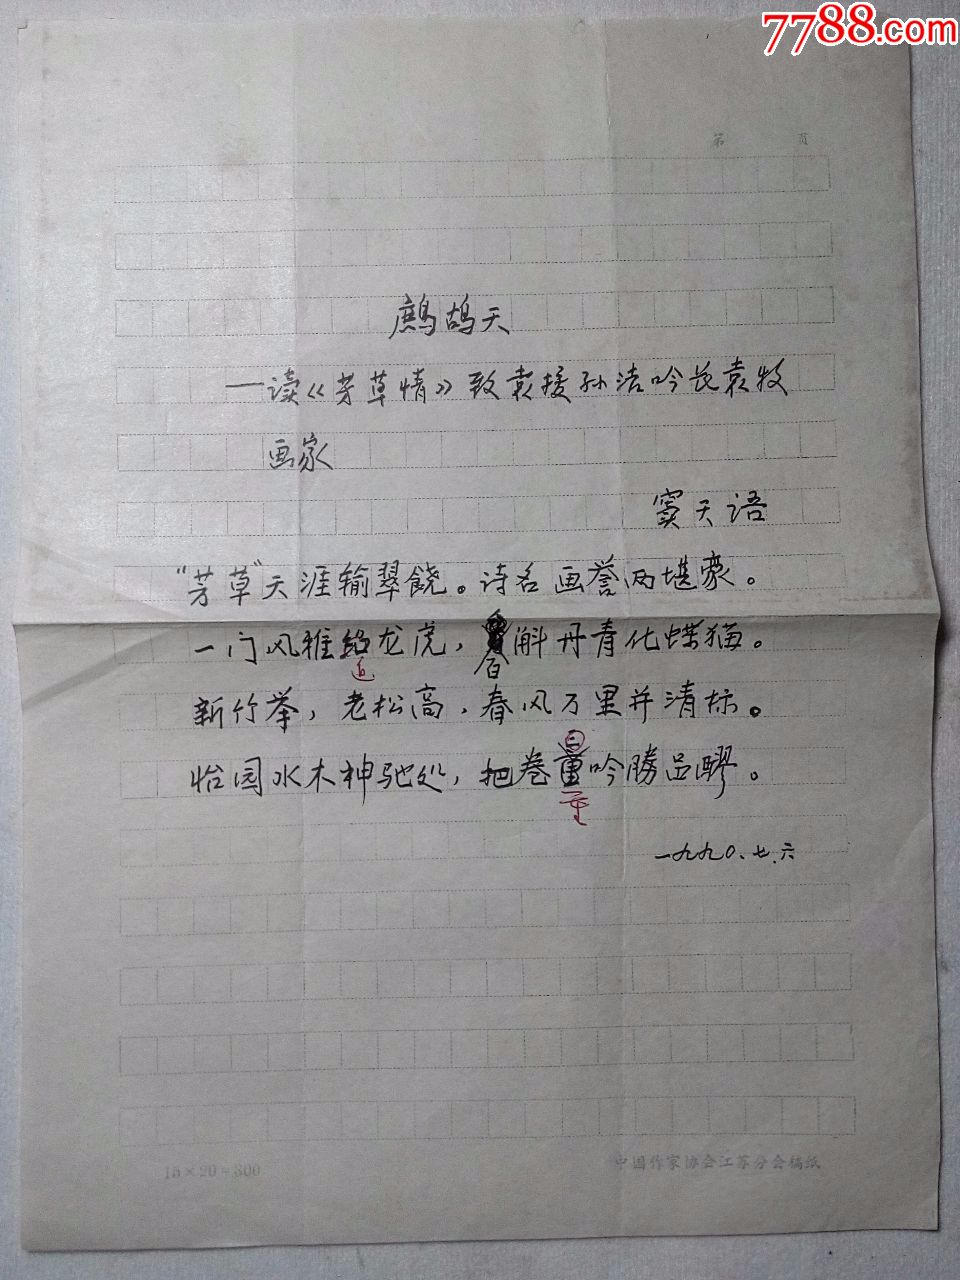 7788.com
第 页
鹧鸪天
——读《芳草情》致袁援孙洁吟长袁牧
画家
窦天语
“芳草”天涯输翠饶。诗名画誉两堪豪。
一门风雅追龙虎，百斛丹青化蝶猫。
新竹举，老松高，春风万里并清标。
怡园水木神驰处，把卷吟胜品醪。
一九九〇.七.六
15×20=300
中国作家协会江苏分会稿纸